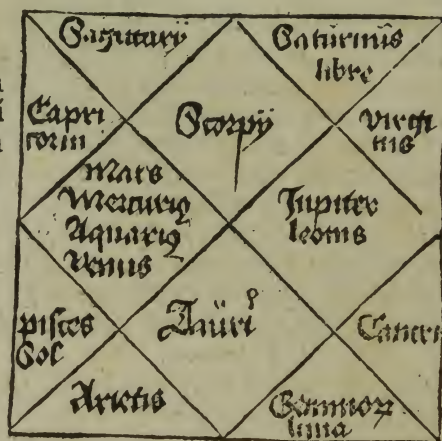 Sagittarij
Saturnus
libre
Capri
corni
Scorpij
virgi
nis
Mars
Mercuriꝰ
Aquariꝰ
Venus
Jupiter
leonis
pisces
Sol
Tauri
Cancri
Arietis
Geminorꝝ
luna